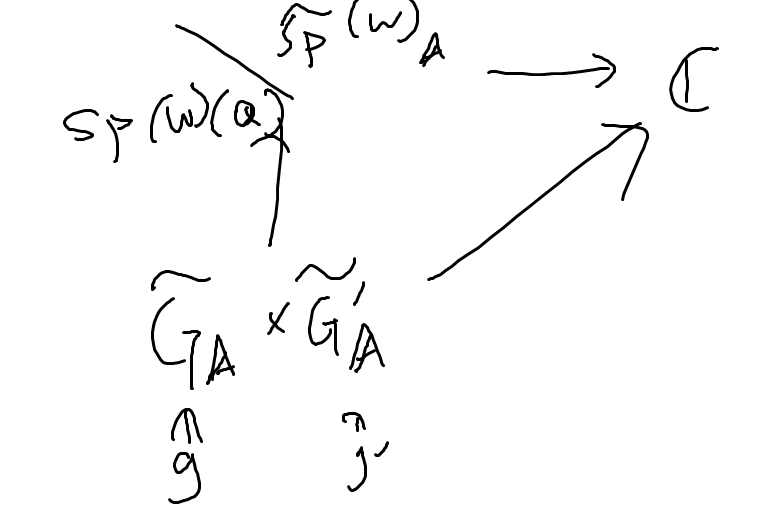 S̃p(W)_A → ℂ
Sp(W)(Q)
G̃_A × G̃'_A
g g'